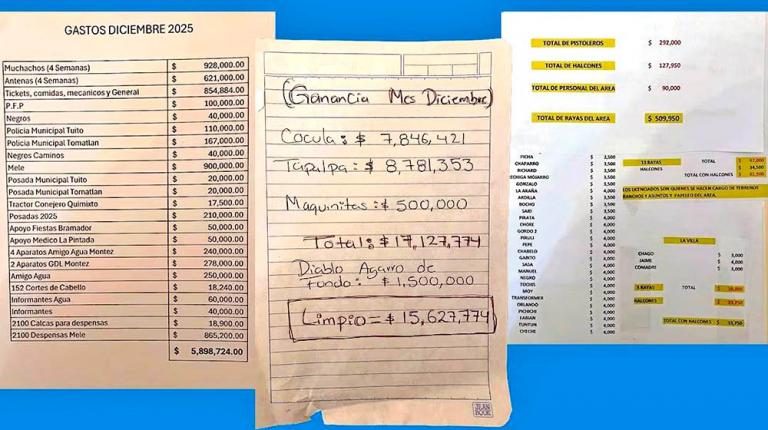 GASTOS DICIEMBRE 2025
Muchachos (4 Semanas) $ 928,000.00
Antenas (4 Semanas) $ 621,000.00
Tickets, comidas, mecanicos y General $ 854,884.00
P.F.P $ 100,000.00
Negros $ 40,000.00
Policia Municipal Tuito $ 110,000.00
Policia Municipal Tomatlan $ 167,000.00
Negros Caminos $ 40,000.00
Mele $ 900,000.00
Posada Municipal Tuito $ 20,000.00
Posada Municipal Tomatlan $ 20,000.00
Tractor Conejero Quimixto $ 17,500.00
Posadas 2025 $ 210,000.00
Apoyo Fiestas Bramador $ 50,000.00
Apoyo Medico La Pintada $ 50,000.00
4 Aparatos Amigo Agua Montez $ 240,000.00
2 Aparatos GDL Montez $ 278,000.00
Amigo Agua $ 250,000.00
152 Cortes de Cabello $ 18,240.00
Informantes Agua $ 60,000.00
Informantes $ 40,000.00
2100 Calcas para despensas $ 18,900.00
2100 Despensas Mele $ 865,200.00
$ 5,898,724.00
(Ganancia Mes Diciembre)
Cocula: $ 7,846,421
Tapalpa: $ 8,781,353
Maquinitas: $ 500,000
Total: $ 17,127,774
Diablo Agarro de
fondo: $ 1,500,000
Limpio = $ 15,627,774
JEAN BOOK
TOTAL DE PISTOLEROS $ 292,000
TOTAL DE HALCONES $ 127,950
TOTAL DE PERSONAL DEL AREA $ 90,000
TOTAL DE RAYAS DEL AREA $ 509,950
PICHA $ 3,500
CHAPARRO $ 3,500
RICHARD $ 3,500
MOJARRO $ 3,500
GONZALO $ 3,500
LA ARAÑA $ 4,000
ARDILLA $ 3,500
BOCHO $ 3,500
SARI $ 3,500
PIRATA $ 4,000
CHORE $ 4,000
GORDO 2 $ 4,000
PIRULI $ 4,000
PEPE $ 4,000
CHABELO $ 4,000
$ 4,000
SASA $ 4,000
MANUEL $ 4,000
NEGRO $ 4,000
$ 4,000
MOY $ 4,000
TRANSFORMER $ 4,000
ORLANDO $ 4,000
PICHICHI $ 4,000
FABIAN $ 4,000
TUNTUN $ 4,000
CHECHE $ 4,000
13 RAYAS TOTAL
HALCONES
TOTAL CON HALCONES
LOS LICENCIADOS SON QUIENES SE HACEN CARGO DE TERRENOS
RANCHOS Y ASUNTOS Y PAPELEO DEL AREA.
LA VILLA
CHAGO $ 3,000
JAIME $ 4,000
COMADRE $ 3,000
3 RAYAS TOTAL
HALCONES
TOTAL CON HALCONES